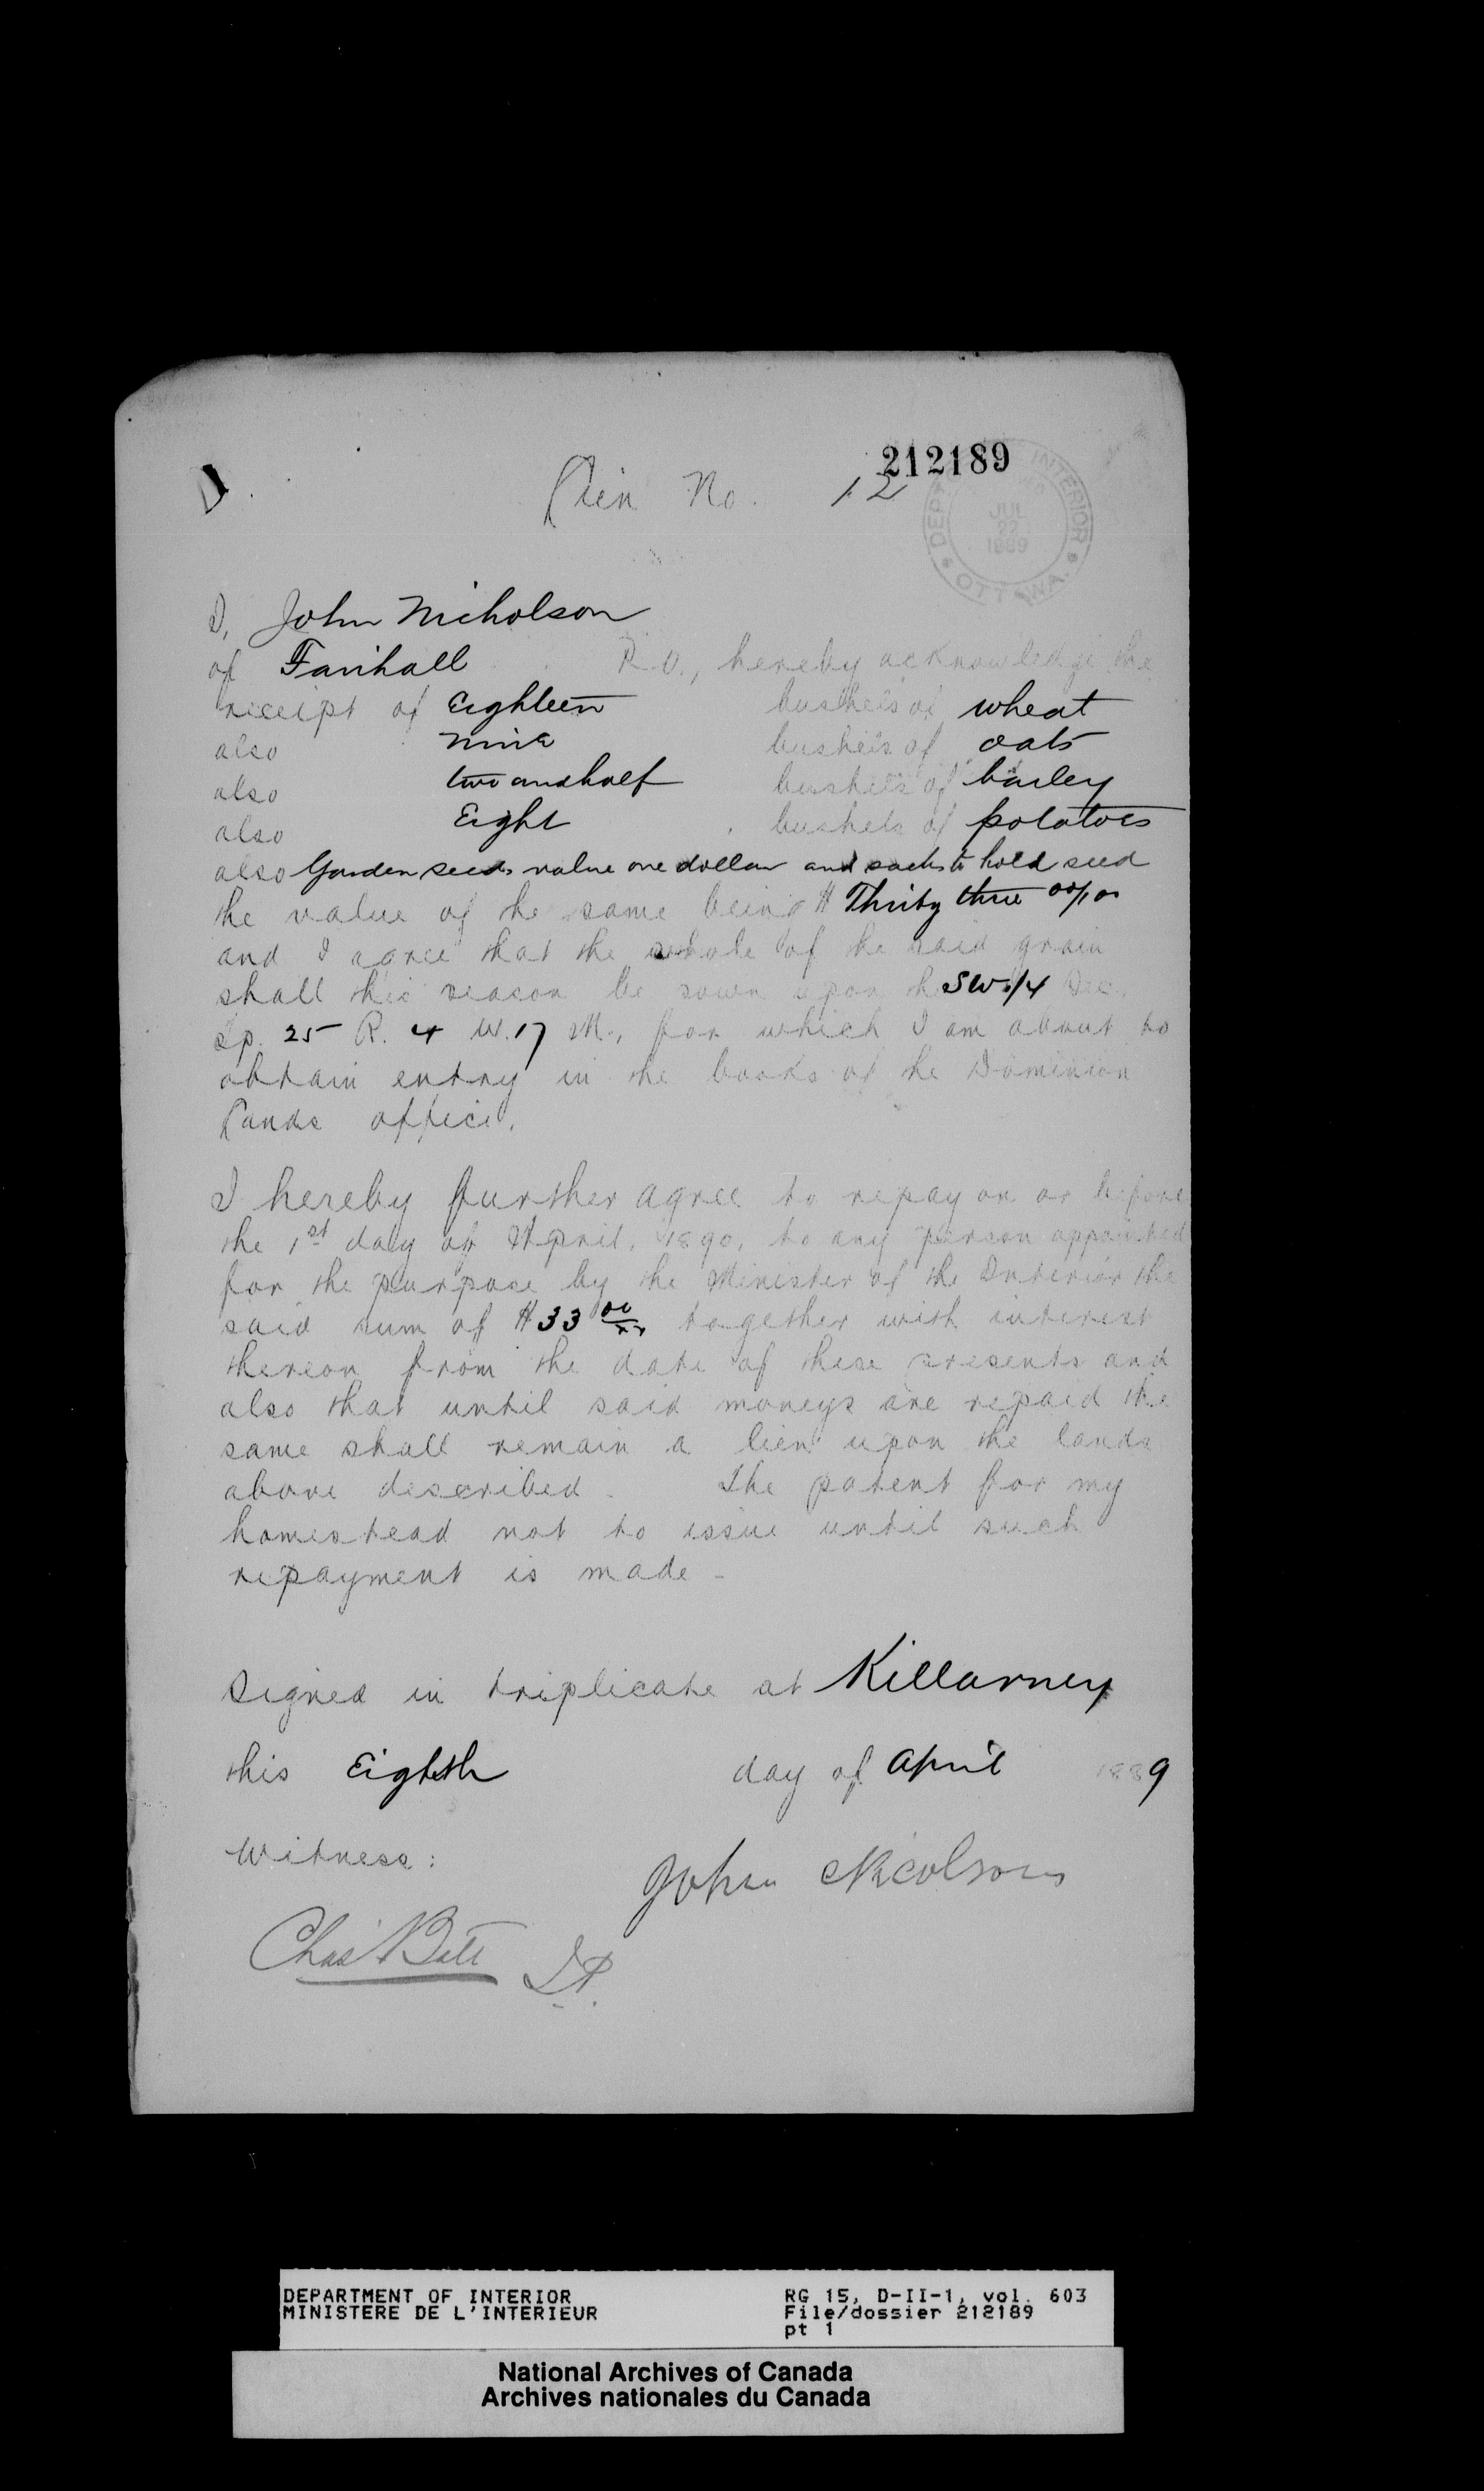 212189
Lien No. 12
DEPT. INTERIOR
JUL
22
1889
OTTAWA.
I, John Nicholson
of Fairhall P.O., hereby acknowledge the
receipt of Eighteen bushels of wheat
also nine bushels of oats
also two and half bushels of barley
also Eight bushels of potatoes
also Garden seeds value one dollar and sacks to hold seed
the value of the same being $ Thirty three 00/00
and I agree that the whole of the said grain
shall this season be sown upon the SW 1/4 Sec.
Tp. 25 R. 4 W. 17 M., for which I am about to
obtain entry in the books of the Dominion
Lands office.
I hereby further agree to repay on or before
the 1st day of April, 1890, to any person appointed
for the purpose by the Minister of the Interior the
said sum of $33 00/xx together with interest
thereon from the date of these presents and
also that until said moneys are repaid the
same shall remain a lien upon the lands
above described. The patent for my
homestead not to issue until such
repayment is made -
Signed in triplicate at Killarney
this Eighth day of April 1889
Witness:
John Nicolson
Chas Bate J.P.
DEPARTMENT OF INTERIOR
MINISTERE DE L'INTERIEUR
RG 15, D-II-1, vol. 603
File/dossier 212189
pt 1
National Archives of Canada
Archives nationales du Canada